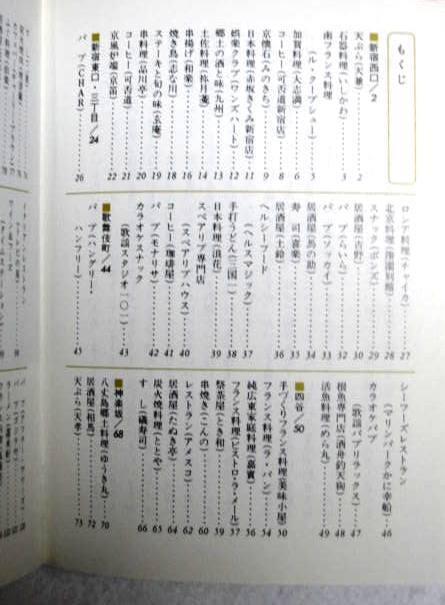 もくじ
■新宿西口/2
天ぷら(天兼)……2
石器料理(いしかわ)……3
南フランス料理
(ル・クープシュー)……4
加賀料理(大志満)……6
コーヒー(可否道新宿店)……8
京懐石(みのきち)……9
日本料理(赤坂きくみ新宿店)……11
娯楽クラブ(ワンズハート)……12
郷土の酒と味(九州)……13
土佐料理(祢月菴)……14
串揚げ(和楽)……16
焼き鳥(志な川)……18
ステーキと旬の味(玄庵)……19
串料理(品川亭)……20
コーヒー(可否道)……21
京風炉端(京笛)……22
■新宿東口・三丁目/24
パブ(CHAR)……26
ロシア料理(チャイカ)……27
スナック(ポンズ)……29
居酒屋(吉野)……30
パブ(らいら)……32
パブ(ソッカイ)……33
居酒屋(馬の助)……34
寿司(喜楽)……35
居酒屋(土鈴)……36
ヘルシーフード
(ヘルスマジック)……37
手打うどん(三国一)……38
日本料理(浪花)……39
スペアリブ専門店
(スペアリブハウス)……40
コーヒー(珈琲屋)……41
パブ(モナリサ)……42
カラオケスナック
(歌謡スタジオ一〇一)……43
■歌舞伎町/44
パブ(ハングリー・
ハンフリー)……45
シーフーズレストラン
(マリンパークかに幸船)……46
カラオケパブ
(歌謡パブリラックス)……47
根魚専門店(酒舟釣天狗)……48
活魚料理(めら丸)……49
■四谷/50
手づくりフランス料理(美味小屋)……50
フランス料理(ラ・パン)……54
純広東家庭料理(嘉賓)……56
フランス料理(ビストロ・ラ・メール)……57
祭茶屋(とき和)……59
串焼き(こんの)……60
レストラン(アメスコ)……62
居酒屋(たぬき亭)……64
炭火焼料理(ととや)……65
すし(磯寿司)……66
■神楽坂/68
八丈島郷土料理(ゆうき丸)……70
居酒屋(相馬)……72
天ぷら(天孝)……73